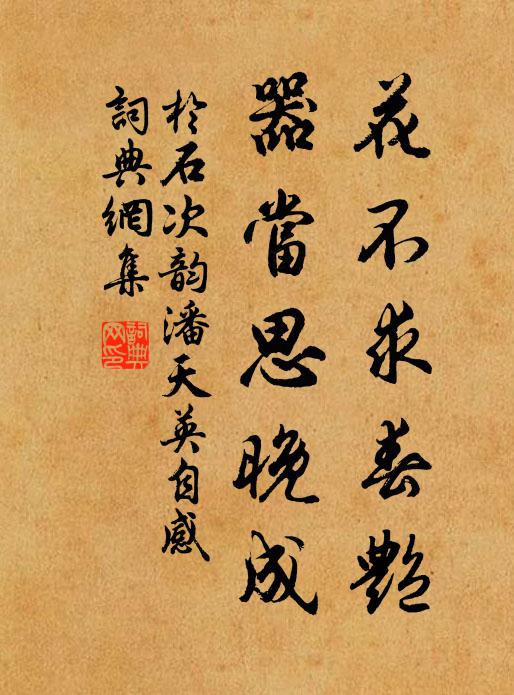 花不求春艷
器當思晚成
於石次韵潘天英自感
詞典網集
詞典網印